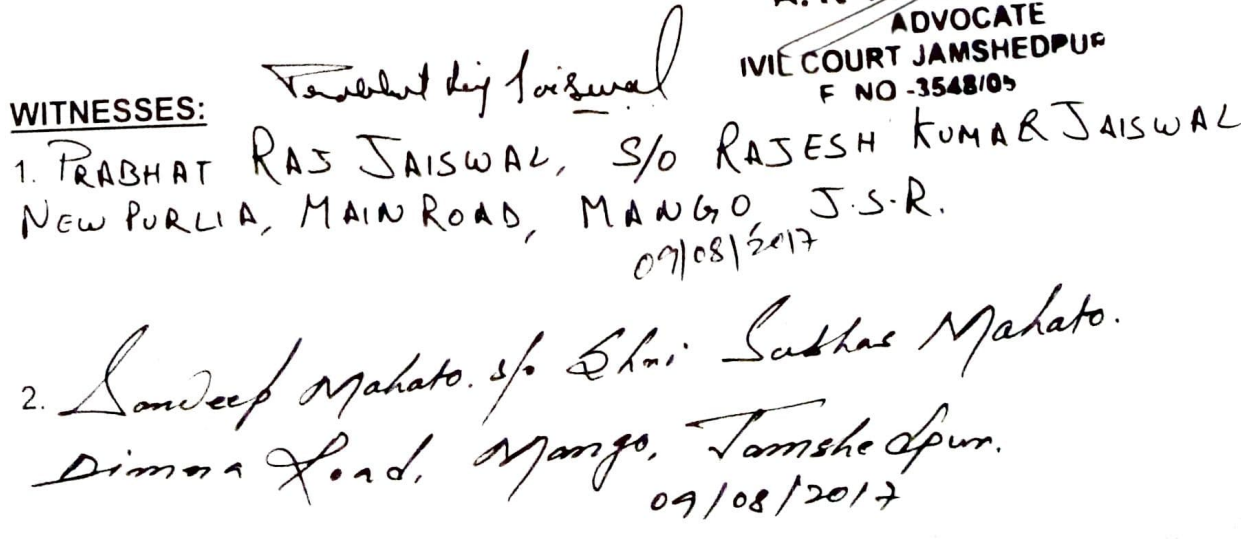 ADVOCATE
IVIL COURT JAMSHEDPUR
F NO -3548/05
Jaiswal
WITNESSES:
1. PRABHAT RAJ JAISWAL, S/O RAJESH KUMAR JAISWAL
NEW PURLIA, MAIN ROAD, MANGO, J.S.R.
09/08/2017
2. Sandeep Mahato. s/o Shri Subhas Mahato.
Dimna Road, Mango, Jamshedpur.
09/08/2017